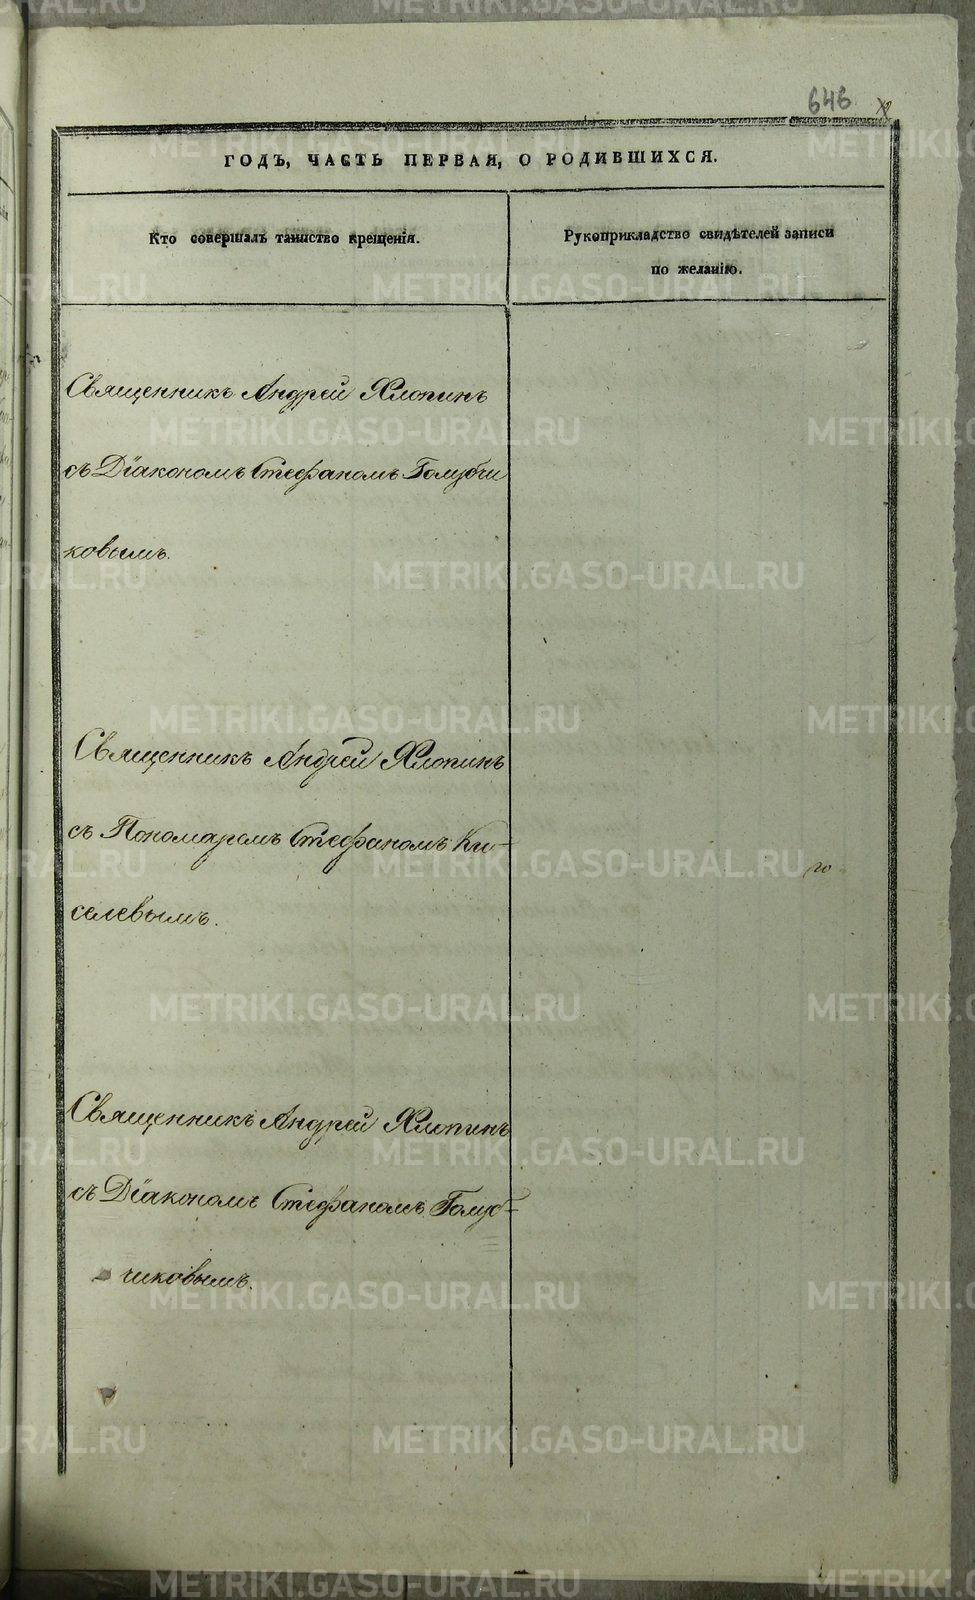 646
ГОДЪ, ЧАСТЬ ПЕРВАЯ, О РОДИВШИХСЯ.
Кто совершалъ таинство крещенія.
Рукоприкладство свидѣтелей записи
по желанію.
Священникъ Андрей Хлопинъ
съ Діакономъ Стефаномъ Голубчи
ковымъ.
Священникъ Андрей Хлопинъ
съ Пономаремъ Стефаномъ Ки-
селевымъ.
Священникъ Андрей Хлопинъ
съ Діакономъ Стефаномъ Голуб-
чиковымъ.
METRIKI.GASO-URAL.RU